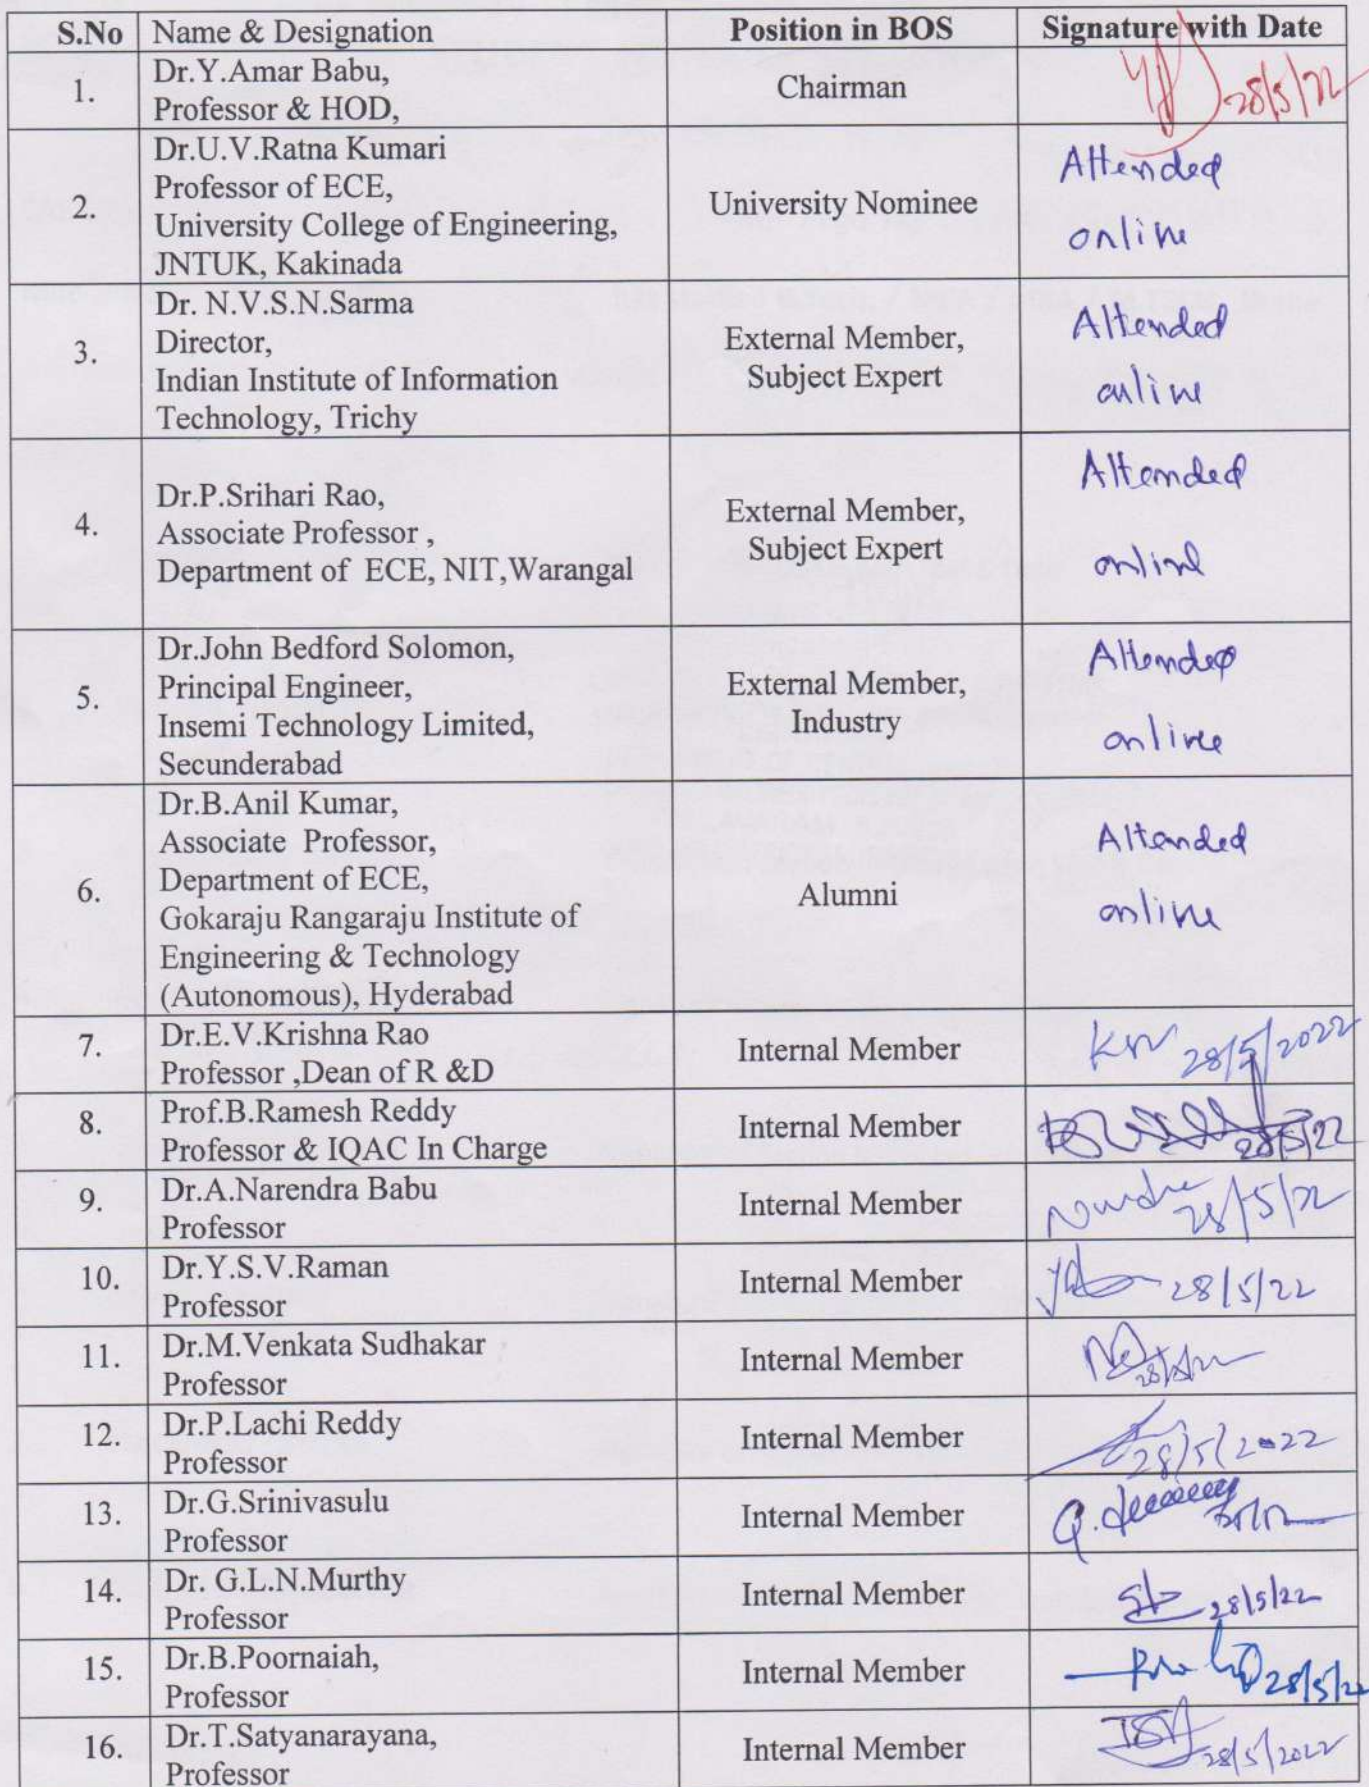 S.No Name & Designation Position in BOS Signature with Date
1. Dr.Y.Amar Babu,
Professor & HOD, Chairman 28/5/22
2. Dr.U.V.Ratna Kumari
Professor of ECE,
University College of Engineering,
JNTUK, Kakinada
University Nominee
Attended
online
3. Dr. N.V.S.N.Sarma
Director,
Indian Institute of Information
Technology, Trichy
External Member,
Subject Expert
Attended
online
4. Dr.P.Srihari Rao,
Associate Professor ,
Department of ECE, NIT,Warangal
External Member,
Subject Expert
Attended
online
5. Dr.John Bedford Solomon,
Principal Engineer,
Insemi Technology Limited,
Secunderabad
External Member,
Industry
Attended
online
6. Dr.B.Anil Kumar,
Associate Professor,
Department of ECE,
Gokaraju Rangaraju Institute of
Engineering & Technology
(Autonomous), Hyderabad
Alumni
Attended
online
7. Dr.E.V.Krishna Rao
Professor ,Dean of R &D
Internal Member
28/5/2022
8. Prof.B.Ramesh Reddy
Professor & IQAC In Charge
Internal Member
28/5/22
9. Dr.A.Narendra Babu
Professor
Internal Member
28/5/22
10. Dr.Y.S.V.Raman
Professor
Internal Member
28/5/22
11. Dr.M.Venkata Sudhakar
Professor
Internal Member
12. Dr.P.Lachi Reddy
Professor
Internal Member
28/5/2022
13. Dr.G.Srinivasulu
Professor
Internal Member
14. Dr. G.L.N.Murthy
Professor
Internal Member
28/5/22
15. Dr.B.Poornaiah,
Professor
Internal Member
28/5/22
16. Dr.T.Satyanarayana,
Professor
Internal Member
28/5/2022